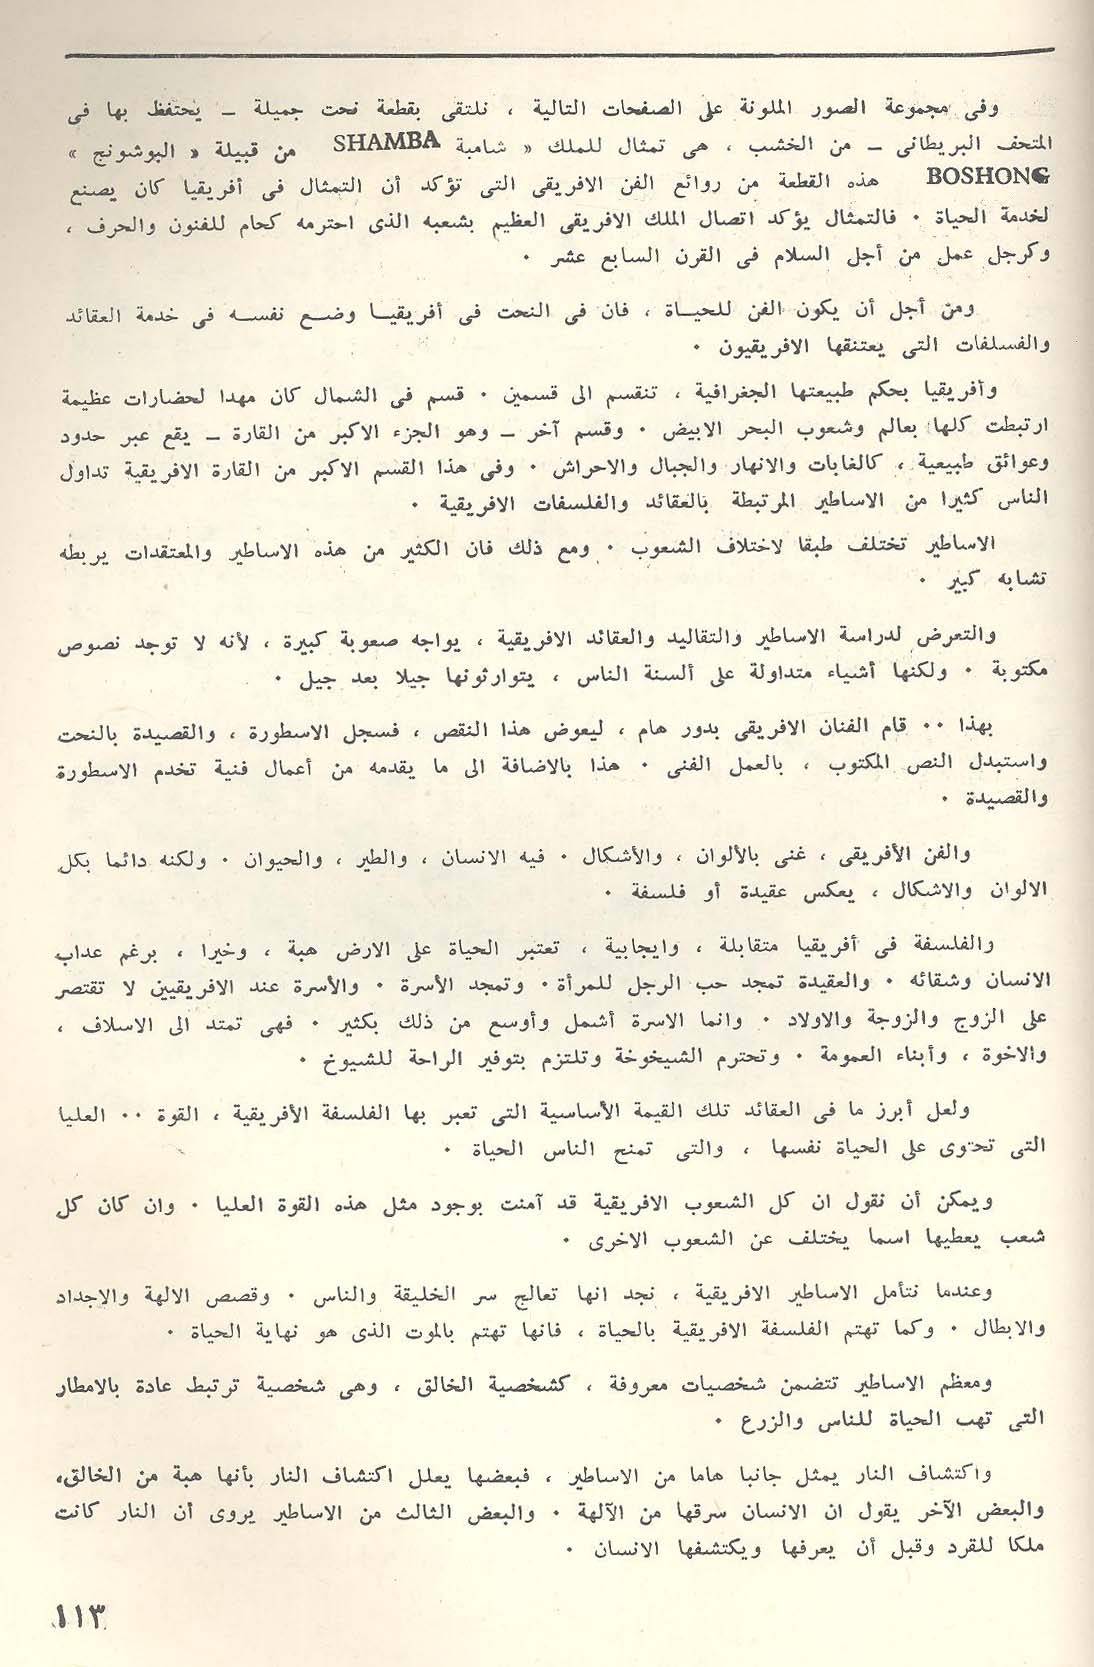 وفى مجموعة الصور الملونة على الصفحات التالية ، نلتقى بقطعة نحت جميلة – يحتفظ بها فى
المتحف البريطانى – من الخشب ، هى تمثال للملك « شامبة SHAMBA من قبيلة « البوشونج »
BOSHONG هذه القطعة من روائع الفن الافريقى التى تؤكد أن التمثال فى أفريقيا كان يصنع
لخدمة الحياة ٠ فالتمثال يؤكد اتصال الملك الافريقى العظيم بشعبه الذى احترمه كحام للفنون والحرف ،
وكرجل عمل من أجل السلام فى القرن السابع عشر ٠
ومن أجل أن يكون الفن للحيــاة ، فان فى النحت فى أفريقيــا وضــع نفســه فى خدمة العقائد
والفسلفات التى يعتنقها الافريقيون ٠
وأفريقيا بحكم طبيعتها الجغرافية ، تنقسم الى قسمين ٠ قسم فى الشمال كان مهدا لحضارات عظيمة
ارتبطت كلها بعالم وشعوب البحر الابيض ٠ وقسم آخر – وهو الجزء الاكبر من القارة – يقع عبر حدود
وعوائق طبيعية ، كالغابات والانهار والجبال والاحراش ٠ وفى هذا القسم الاكبر من القارة الافريقية تداول
الناس كثيرا من الاساطير المرتبطة بالعقائد والفلسفات الافريقية ٠
الاساطير تختلف طبقا لاختلاف الشعوب ٠ ومع ذلك فان الكثير من هذه الاساطير والمعتقدات يربطه
تشابه كبير ٠
والتعرض لدراسة الاساطير والتقاليد والعقائد الافريقية ، يواجه صعوبة كبيرة ، لأنه لا توجد نصوص
مكتوبة ٠ ولكنها أشياء متداولة على ألسنة الناس ، يتوارثونها جيلا بعد جيل ٠
بهذا ٠٠ قام الفنان الافريقى بدور هام ، ليعوض هذا النقص ، فسجل الاسطورة ، والقصيدة بالنحت
واستبدل النص المكتوب ، بالعمل الفنى ٠ هذا بالاضافة الى ما يقدمه من أعمال فنية تخدم الاسطورة
والقصيدة ٠
والفن الأفريقى ، غنى بالألوان ، والأشكال ٠ فيه الانسان ، والطير ، والحيوان ٠ ولكنه دائما بكل
الالوان والاشكال ، يعكس عقيدة أو فلسفة ٠
والفلسفة فى أفريقيا متقابلة ، وايجابية ، تعتبر الحياة على الارض هبة ، وخيرا ، برغم عذاب
الانسان وشقائه ٠ والعقيدة تمجد حب الرجل للمرأة ٠ وتمجد الأسرة ٠ والأسرة عند الافريقيين لا تقتصر
على الزوج والزوجة والاولاد ٠ وانما الاسرة أشمل وأوسع من ذلك بكثير ٠ فهى تمتد الى الاسلاف ،
والاخوة ، وأبناء العمومة ٠ وتحترم الشيخوخة وتلتزم بتوفير الراحة للشيوخ ٠
ولعل أبرز ما فى العقائد تلك القيمة الأساسية التى تعبر بها الفلسفة الأفريقية ، القوة ٠٠ العليا
التى تحتوى على الحياة نفسها ، والتى تمنح الناس الحياة ٠
ويمكن أن نقول ان كل الشعوب الافريقية قد آمنت بوجود مثل هذه القوة العليا ٠ وان كان كل
شعب يعطيها اسما يختلف عن الشعوب الاخرى ٠
وعندما نتأمل الاساطير الافريقية ، نجد انها تعالج سر الخليقة والناس ٠ وقصص الالهة والاجداد
والابطال ٠ وكما تهتم الفلسفة الافريقية بالحياة ، فانها تهتم بالموت الذى هو نهاية الحياة ٠
ومعظم الاساطير تتضمن شخصيات معروفة ، كشخصية الخالق ، وهى شخصية ترتبط عادة بالامطار
التى تهب الحياة للناس والزرع ٠
واكتشاف النار يمثل جانبا هاما من الاساطير ، فبعضها يعلل اكتشاف النار بأنها هبة من الخالق،
والبعض الآخر يقول ان الانسان سرقها من الآلهة ٠ والبعض الثالث من الاساطير يروى أن النار كانت
ملكا للقرد وقبل أن يعرفها ويكتشفها الانسان ٠
١١٣